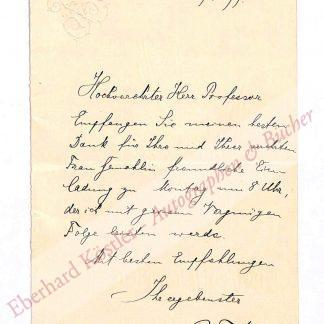 Hochverehrter Herr Professor
Empfangen Sie meinen besten
Dank für Ihre und Ihrer verehrten
Frau Gemahlin freundliche Ein-
ladung zu Montag um 8 Uhr,
der ich mit grossem Vergnügen
Folge leisten werde.
Mit besten Empfehlungen
Ihr ergebenster
Eberhard Köstler Autographen & Bücher